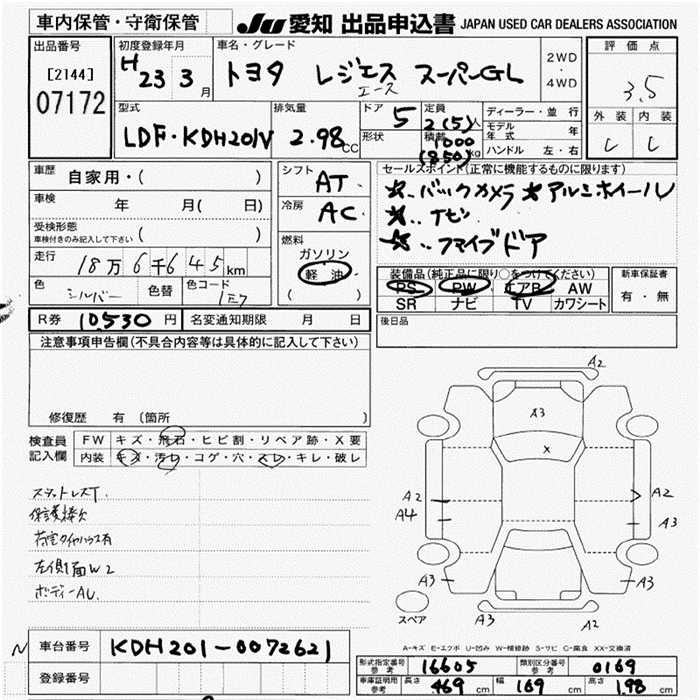 車内保管・守衛保管
JU 愛知 出品申込書 JAPAN USED CAR DEALERS ASSOCIATION
出品番号
[2144]
07172
初度登録年月
H 23 3 月
車名・グレード
トヨタ レジアス スーパーGL
エース
2WD
・
4WD
評価点
3.5
外装 内装
型式
LDF・KDH201V
排気量
2.98 CC
ドア 5
形状
定員
2(5)人
積載
1000
(850)kg
ディーラー・並行
モデル年式 年
ハンドル 左・右
車歴
自家用・( )
車検
年 月( 日)
受検形態
車検付きのみ記入して下さい ( )
走行
18万6千645km
色
シルバー
色替
色コード
1E7
シフト
AT
冷房
AC
燃料
ガソリン
軽油
( )
セールスポイント(正常に機能するものに限ります)
☆‥バックカメラ ★アルミホイール
☆‥ナビ
☆‥ファイブドア
装備品(純正品に限り○をつけてください)
PS PW エアB AW
SR ナビ TV カワシート
新車保証書
有・無
R券 10,530 円
名変通知期限 月 日
後日品
注意事項申告欄(不具合内容等は具体的に記入して下さい)
修復歴 有 〔箇所 〕
検査員
記入欄
FW キズ・飛石・ヒビ割・リペア跡・X要
内装 キズ・汚レ・コゲ・穴・スレ・キレ・破レ
荷室タイヤハウス有
左側面W2
A2
A3
X
A2
A4
A2
A3
A3
A3
A2
スペア
A-キズ E-エクボ U-凹み W-補修跡 S-サビ C-腐食 XX-交換済
N
車台番号
KDH201-0072621
登録番号
形式指定番号
参考
16605
類別区分番号
参考
0169
車庫証明用
参考
長さ 469 cm
幅 169 cm
高さ 198 cm